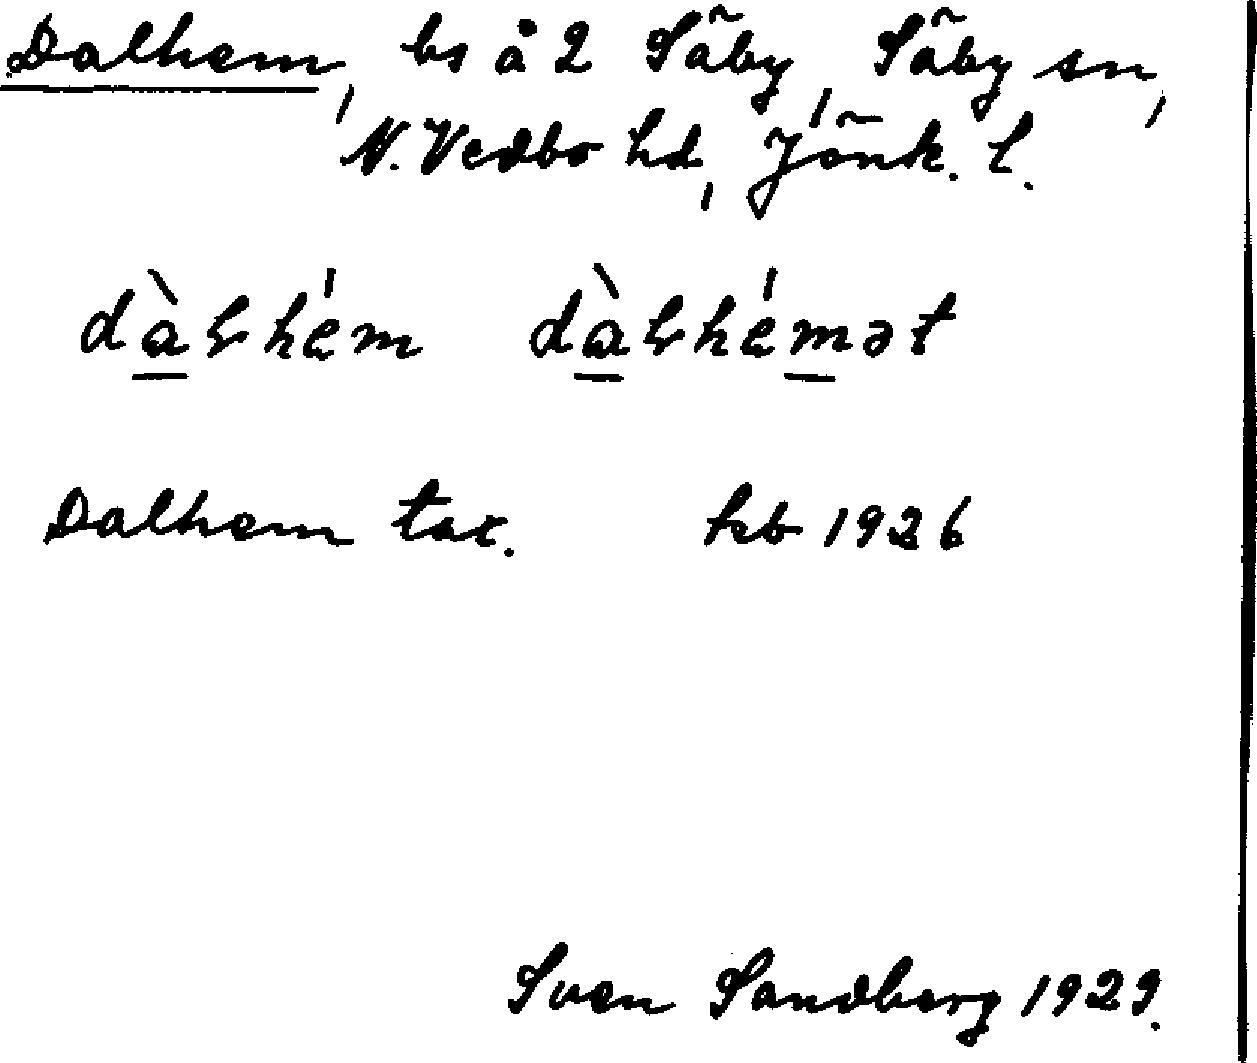 Dalhem, bs å 2 Säby, Säby sn,
N. Vedbo hd, Jönk. l.
dàⱡhém dàⱡhémət
Dalhem tax. kb 1926
Sven Sandberg 1929.